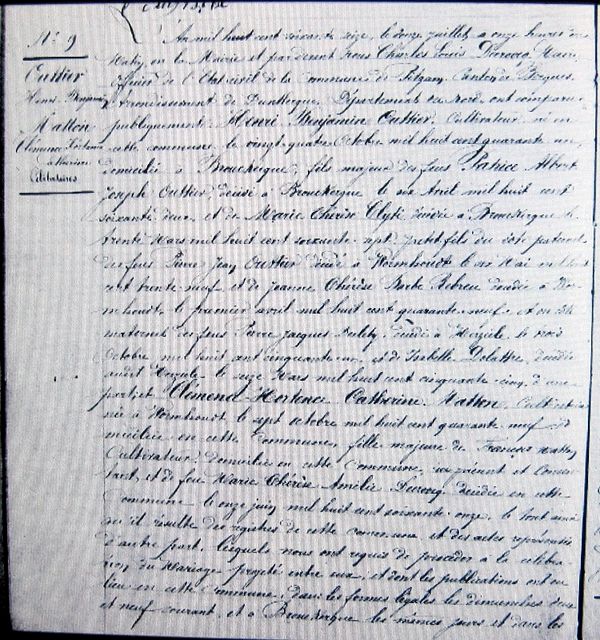 N° 9
Outtier
Henri Benjamin
&
Matton
Clémence Hortence
Catherine
Célibataires
L'An mil huit cent soixante seize, le douze juillet, à onze heures du
Matin, en la Mairie et pardevant Nous Charles Louis Maire
Officier de l'Etat civil de la Commune de Pitgam, Canton de Bergues,
Arrondissement de Dunkerque, Département du Nord, ont comparu
publiquement: Henri Benjamin Outtier, Cultivateur, né en
cette commune le vingt quatre Octobre mil huit cent quarante un,
domicilié à Brouckerque, fils majeur des feus Patrice Albert
Joseph Outtier, décédé à Brouckerque le six Avril mil huit cent
soixante deux, et de Marie Thérèse décédée à Brouckerque le
trente Mars mil huit cent soixante sept, petit fils du côté paternel
des feus Pierre Jean Outtier décédé à Wormhoudt le six Mai mil huit
cent trente neuf et de Jeanne Thérèse Barbe décédée à Wor-
mhoudt, le premier avril mil huit cent quarante neuf, et du côté
maternel des feus Pierre Jacques décédé à le trois
Octobre mil huit cent cinquante un, et d'Isabelle Delattre, décédée
audit le seize Mars mil huit cent cinquante cinq, d'une
part; et Clémence Hortence Catherine Matton, Cultivatrice
née à Wormhoudt le sept octobre mil huit cent quarante neuf do-
miciliée en cette Commune, fille majeure de François Matton
Cultivateur, domicilié en cette Commune, ici présent et consen-
tant, et de feue Marie Thérèse Amélie décédée en cette
Commune le onze juin mil huit cent soixante onze, le tout ainsi
qu'il résulte des registres de cette commune et des actes représentés
d'autre part. Lesquels nous ont requis de procéder à la célébra-
tion du Mariage projeté entre eux, et dont les publications ont eu
lieu en cette Commune, dans les formes légales les dimanches deux
et neuf courant, et à Brouckerque les mêmes jours et dans les